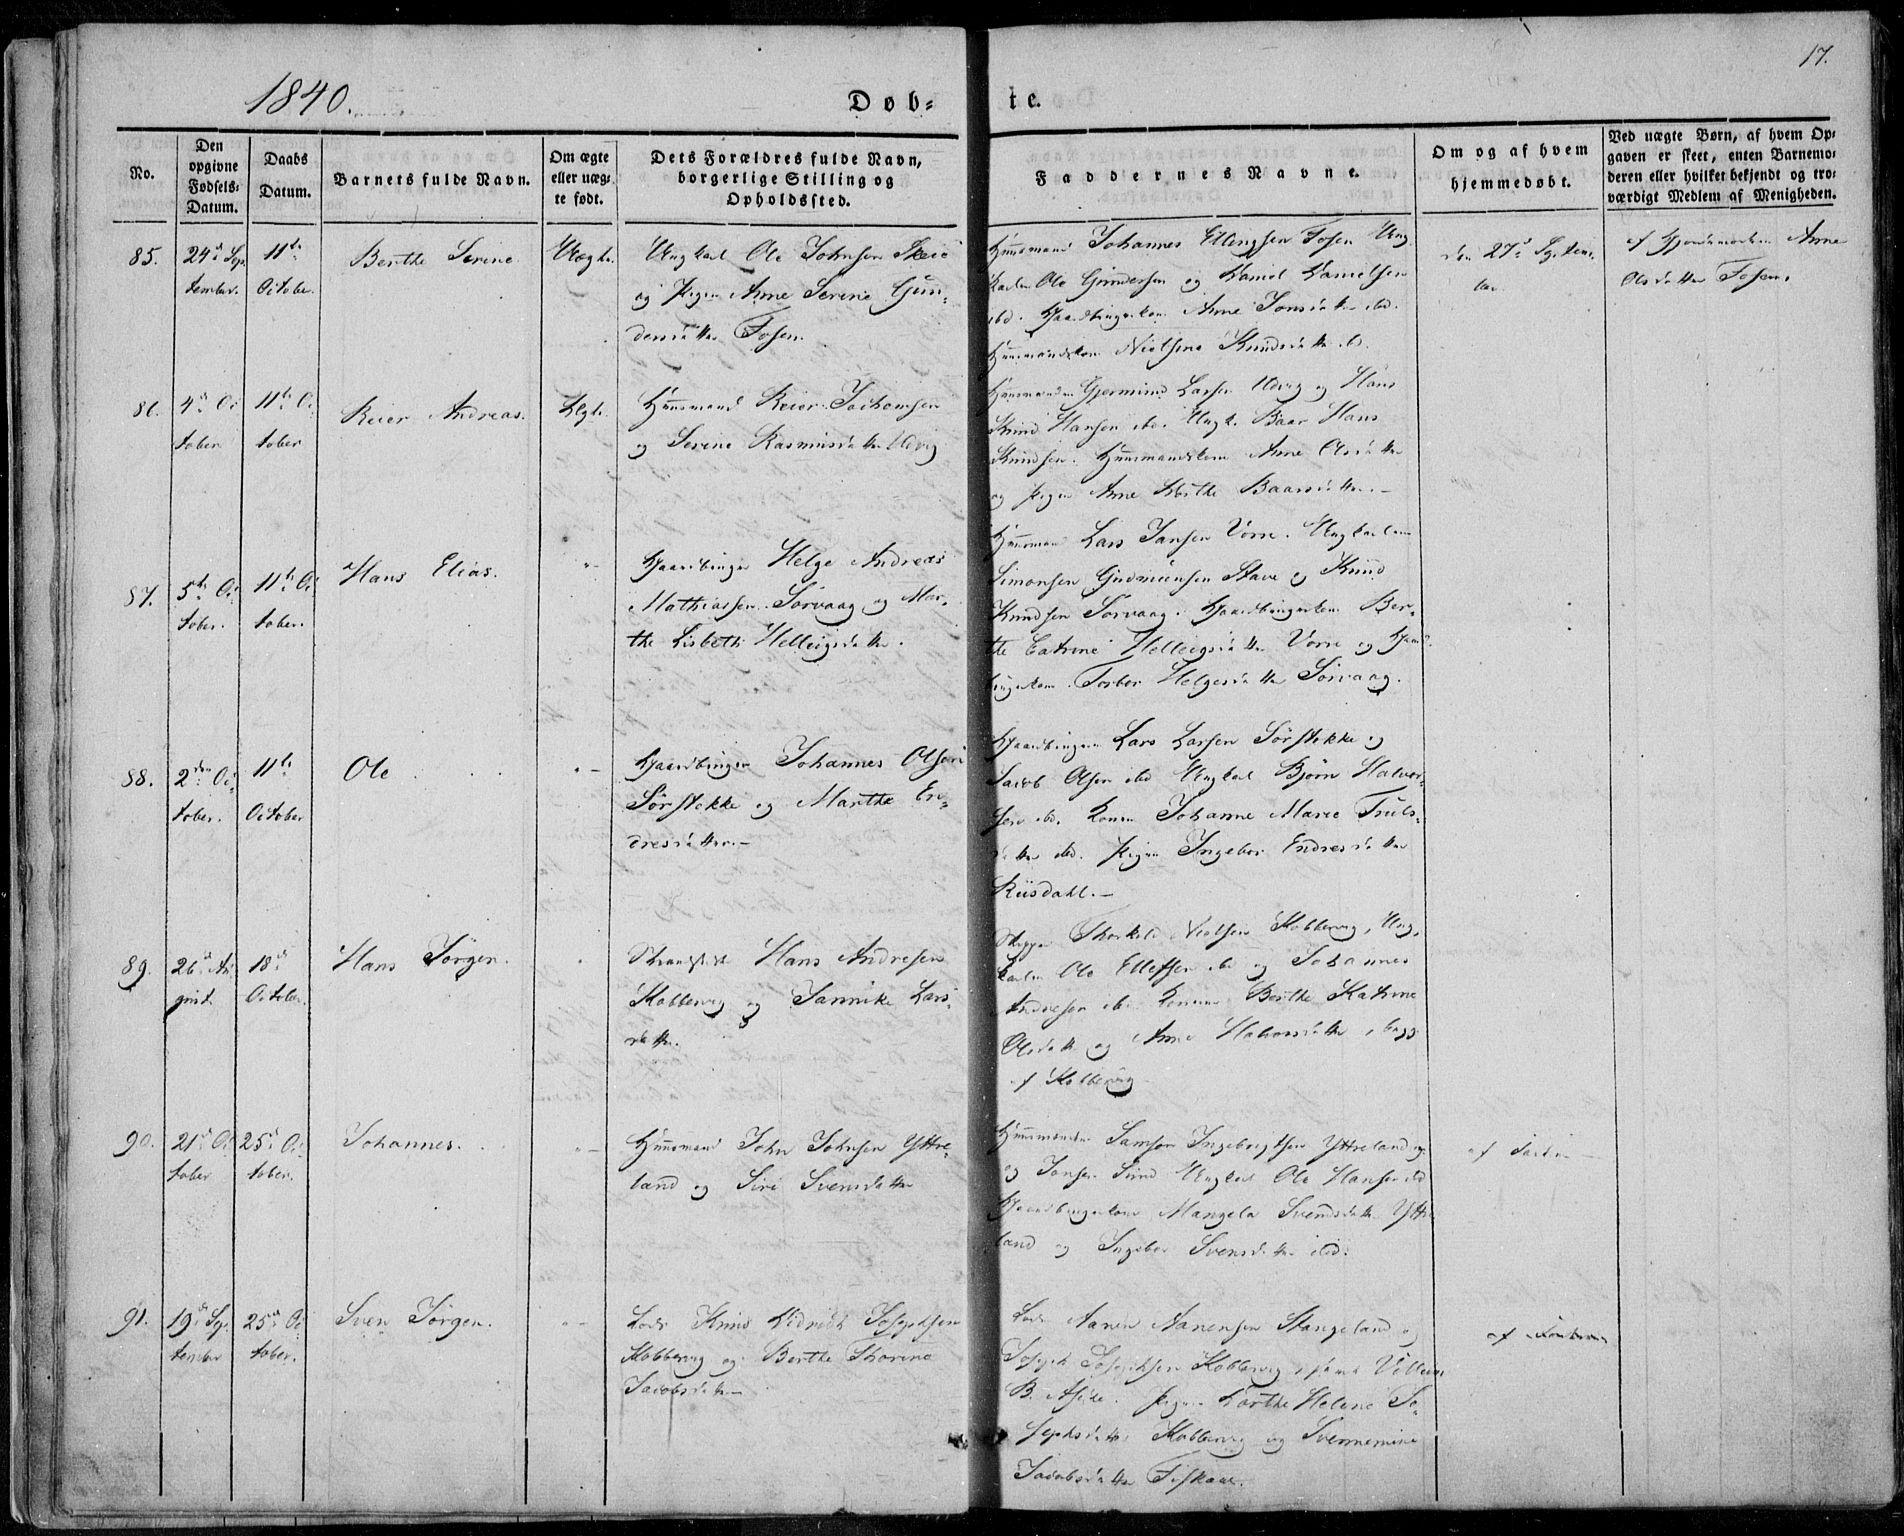 17.
1840.
Døb-
te.
No.
Den opgivne Fødsels-Datum.
Daabs Datum.
Barnets fulde Navn.
Om ægte eller uæg-te født.
Dets Forældres fulde Navn, borgerlige Stilling og Opholdssted.
Faddernes Navne.
Om og af hvem hjemmedøbt.
Ved uægte Børn, af hvem Op-gaven er skeet, enten Barnemo-deren eller hvilket bekjendt og tro-værdigt Medlem af Menigheden.
85.
24de Sep-
tember.
11te
October.
Berthe Serine
Uægte
Ungkarl Ole Johnsen Skeie
og Pigen Anne Serine Gun-
dersdatter Fosen.
Huusmand Johannes Ellingsen Fosen Ung-
karlen Ole Gundersen og Daniel Danielsen
ibd. Gaardbrugerkone Anne Jonsdatter ibd.
Huusmandskone Nielsine Knudsdatter ibd.
den 27de Septem-
ber
af Gjordemoderen Anne
Olsdatter Fosen.
86.
4de Oc-
tober
11te Oc-
tober
Reier Andreas.
Ægte
Huusmand Reier Jochomsen
og Serine Rasmusdatter Udvig
Huusmanden Gjermund Larsen Udvig og Hans
Knud Hansen ibd. Ungk. Baar Hans
Knudsen. Huusmandskone Anne Olsdatter
og Pigen Anne Dorthe Baarsdatter.
87.
5te Oc-
tober.
11te Oc-
tober.
Hans Elias.
"-
Gaardbruger Helge Andreas
Mathiassen Sørvaag og Mar-
the Lisbeth Helleigsdatter.
Huusmand Lars Jansen Vorre. Ungkarlene
Simonsen Gudmunsen Stave og Knud
Knudsen Sørvaag. Gaardbrugerkone Ber-
the Catrine Helleigsdatter Vorre og Gaard-
brugerkone Torbor Helgesdatter Sørvaag.
88.
2den Oc-
tober.
11te
October
Ole
"-
Gaardbruger Johannes Olsen
Sørstokke og Marthe En-
dresdatter.-
Gaardbrugerne Lars Larsen Sørstokke og
Jacob Olsen ibd Ungkarl Bjørn Halvor-
sen ibd. Konen Johanne Marie Truls-
datter ibd. Pigen Ingebor Endresdatter
Riisdahl.-
89.
26de Au-
gust.
18de
October.
Hans Jørgen.
"
Strandsidder Hans Andresen
Kobbervig og Jannike Lars-
datter.
Skipper Thorkild Nielsen Kobbervig, Ung-
karlen Ole Ellefsen ibd og Johannes
Andresen ibd Konerne Berthe Katrine
Olsdatter og Anne Halvorsdatter, begge
af Kobbervig
90.
21de Oc-
tober
25de Oc-
tober.
Johannes.
"-
Huusmand John Johnsen Yttre-
land og Siri Svensdatter
Huusmanden Samson Ingebregtsen Yttreland og
og Jonsen Sund Ungkarl Ole Hansen ibd
Gaardbrugerkone Mangela Svendsdatter Yttre-
land og Ingebor Svensdatter ibd.
af Faderen
91.
19de Sep-
tember
25de Oc-
tober.
Sven Jørgen.
"-
Lods Knud Didrich Josephsen
Kobbervig og Berthe Thorine
Jacobsdatter
Lods Aanen Aanensen Stangeland og
Joseph Josephsen Kobbervig, samt Villum
B. Pigen Dorthe Helene Jo-
sephsdatter Kobbervig og Svennemine
Jacobsdatter Fiskaae.
af